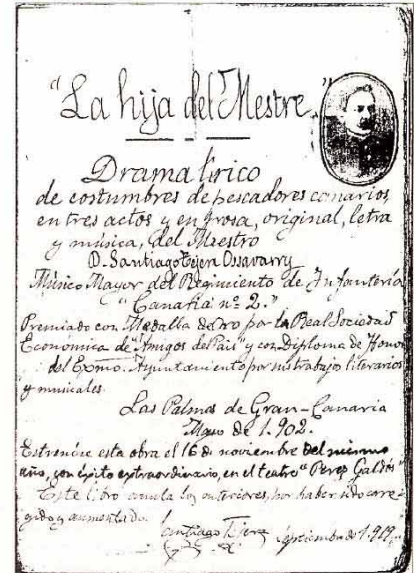 "La hija del Mestre."
Drama lírico
de costumbres de pescadores canarios,
en tres actos y en prosa, original, letra
y música, del Maestro
D. Santiago Tejera Ossavarry
Músico Mayor del Regimiento de Infantería
"Canaria nº 2."
Premiado con Medalla de Oro por la Real Sociedad
Económica de "Amigos del País" y con Diploma de Honor
del Excmo. Ayuntamiento por sus trabajos literarios
y musicales.
Las Palmas de Gran-Canaria
Mayo de 1.902.
Estrenóse esta obra el 16 de noviembre del mismo
año, con éxito extraordinario, en el teatro "Perez Galdós"
Este libro anula los anteriores, por haber sido corre-
gido y aumentado.
Santiago Tejera Septiembre de 1.919.